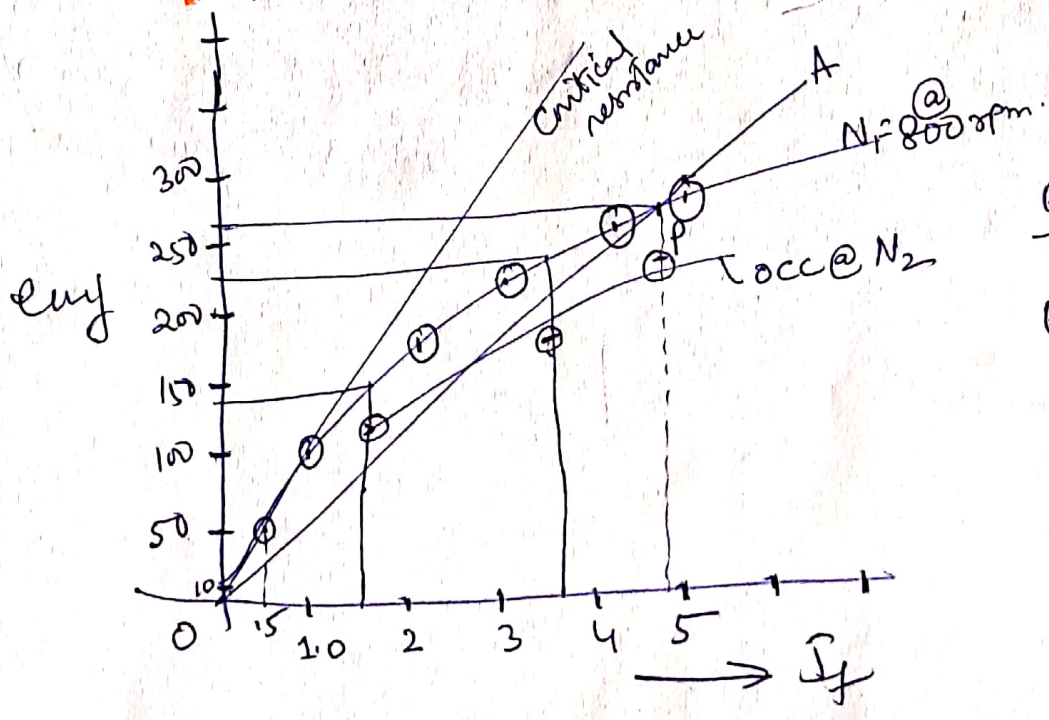 Critical
resistance
A
@
N₁=800 rpm.
300
250
P
OCC @ N₂
emf
200
150
100
50
10
0 .5 1.0 2 3 4 5
If